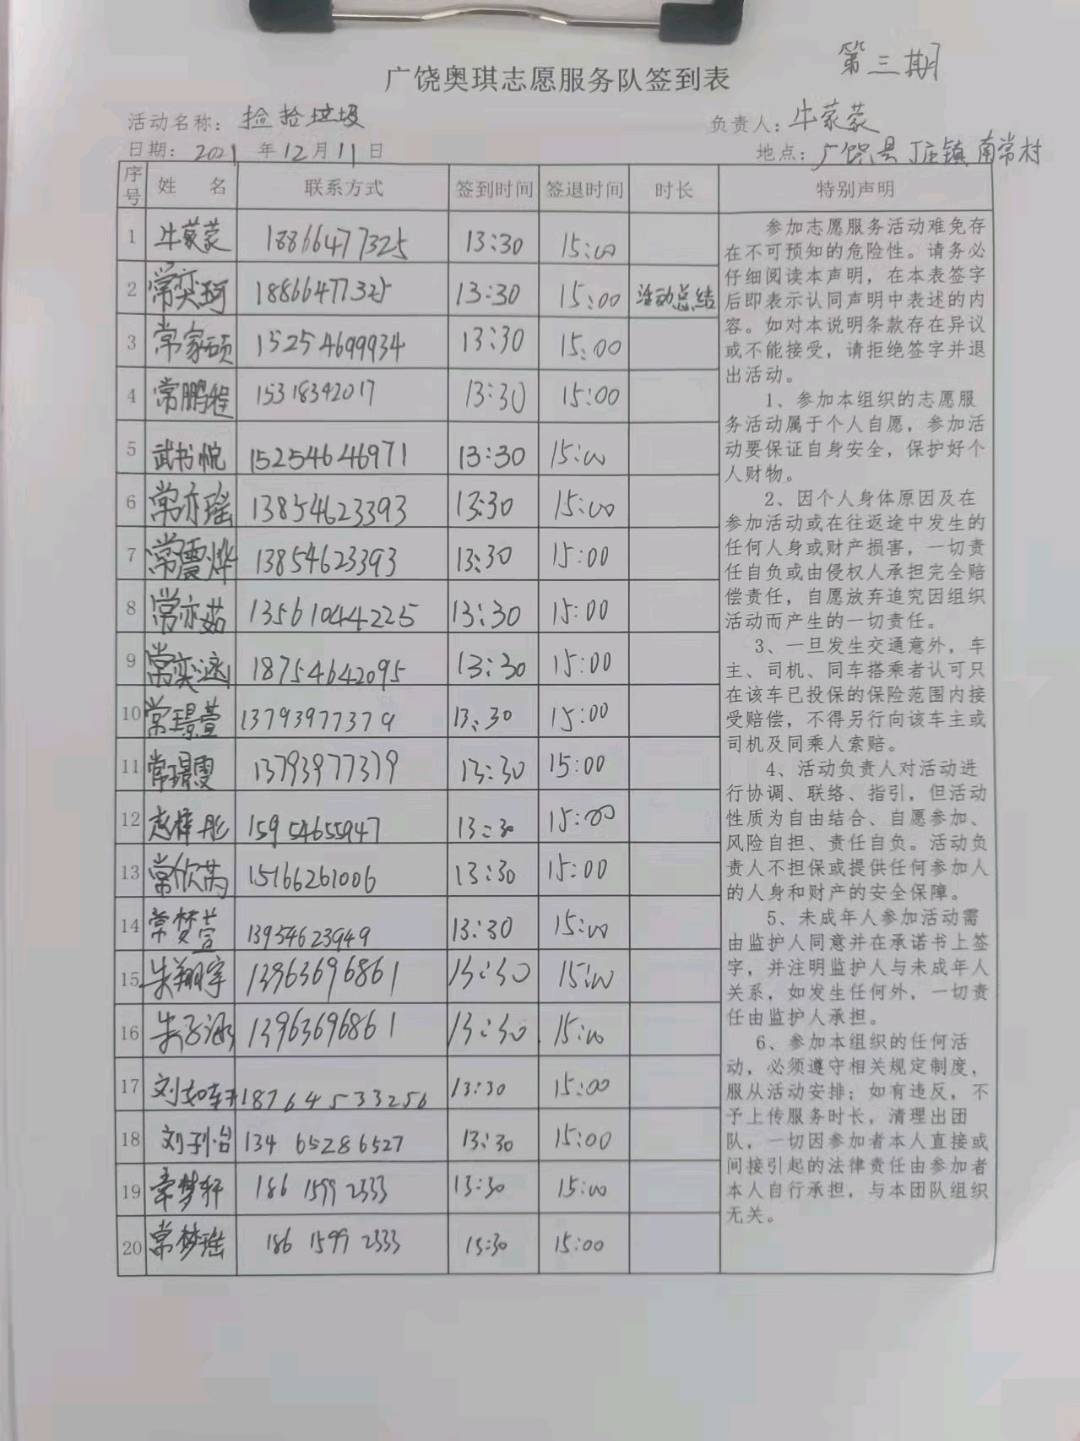 第三期
广饶奥琪志愿服务队签到表
活动名称：捡拾垃圾 负责人：牛蒙蒙
日期：2021年12月11日 地点：广饶县丁庄镇南常村
序号 姓名 联系方式 签到时间 签退时间 时长 特别声明
1 牛蒙蒙 18866477325 13:30 15:00
2 常奕珂 18866477325 13:30 15:00 活动总结
3 常家硕 15254699934 13:30 15:00
4 常鹏程 15318342017 13:30 15:00
5 武书悦 15254646971 13:30 15:00
6 常亦瑶 13854623393 13:30 15:00
7 常震烨 13854623393 13:30 15:00
8 常亦茹 13561044225 13:30 15:00
9 常奕涵 18754642095 13:30 15:00
10 常璟萱 13793977379 13:30 15:00
11 常璟雯 13793977379 13:30 15:00
12 梓彤 15954655947 13:30 15:00
13 常欣 15166261006 13:30 15:00
14 常梦萱 13954623949 13:30 15:00
15 朱翔宇 13963696861 13:30 15:00
16 朱子涵 13963696861 13:30 15:00
17 刘如 18764533256 13:30 15:00
18 刘子怡 134 65286527 13:30 15:00
19 梦轩 186 1599 2333 13:30 15:00
20 常梦瑶 186 1599 2333 13:30 15:00
参加志愿服务活动难免存
在不可预知的危险性。请务必
仔细阅读本声明，在本表签字
后即表示认同声明中表述的内
容。如对本说明条款存在异议
或不能接受，请拒绝签字并退
出活动。
1、参加本组织的志愿服
务活动属于个人自愿，参加活
动要保证自身安全，保护好个
人财物。
2、因个人身体原因及在
参加活动或在往返途中发生的
任何人身或财产损害，一切责
任自负或由侵权人承担完全赔
偿责任，自愿放弃追究因组织
活动而产生的一切责任。
3、一旦发生交通意外，车
主、司机、同车搭乘者认可只
在该车已投保的保险范围内接
受赔偿，不得另行向该车主或
司机及同乘人索赔。
4、活动负责人对活动进
行协调、联络、指引，但活动
性质为自由结合、自愿参加、
风险自担、责任自负。活动负
责人不担保或提供任何参加人
的人身和财产的安全保障。
5、未成年人参加活动需
由监护人同意并在承诺书上签
字，并注明监护人与未成年人
关系，如发生任何外，一切责
任由监护人承担。
6、参加本组织的任何活
动，必须遵守相关规定制度，
服从活动安排；如有违反，不
予上传服务时长，清理出团
队，一切因参加者本人直接或
间接引起的法律责任由参加者
本人自行承担，与本团队组织
无关。